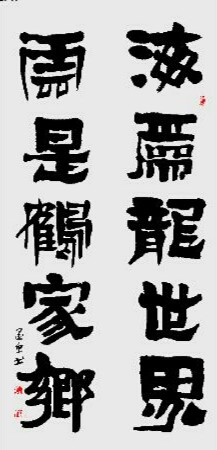 海爲龍世界
雲是鶴家鄉